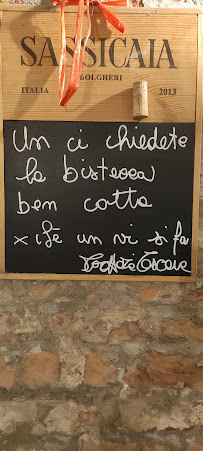 SASSICAIA
BOLGHERI
ITALIA 2013
Un ci chiedete
la bistecca
ben cotta
x chè un vi si fa
Toscana